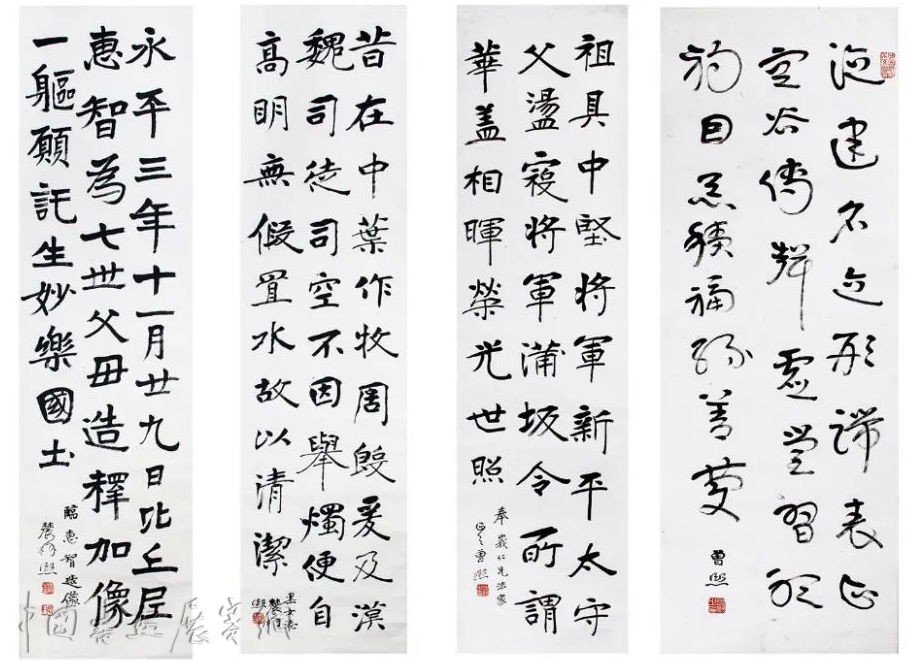 德建名立形端表正
空谷傳聲虛堂習聽
禍因惡積福緣善慶
曾熙
祖具中堅將軍新平太守
父盪寇將軍蒲坂令所謂
華蓋相暉榮光世照
曾熙
昔在中葉作牧周殷爰及漢
魏司徒司空不因舉燭便自
高明無假置水故以清潔
黑女志
農髯熙
永平三年十一月廿九日比丘尼
惠智為七世父毋造釋加像
一軀願託生妙樂國土
臨惠智造像
農髯熙